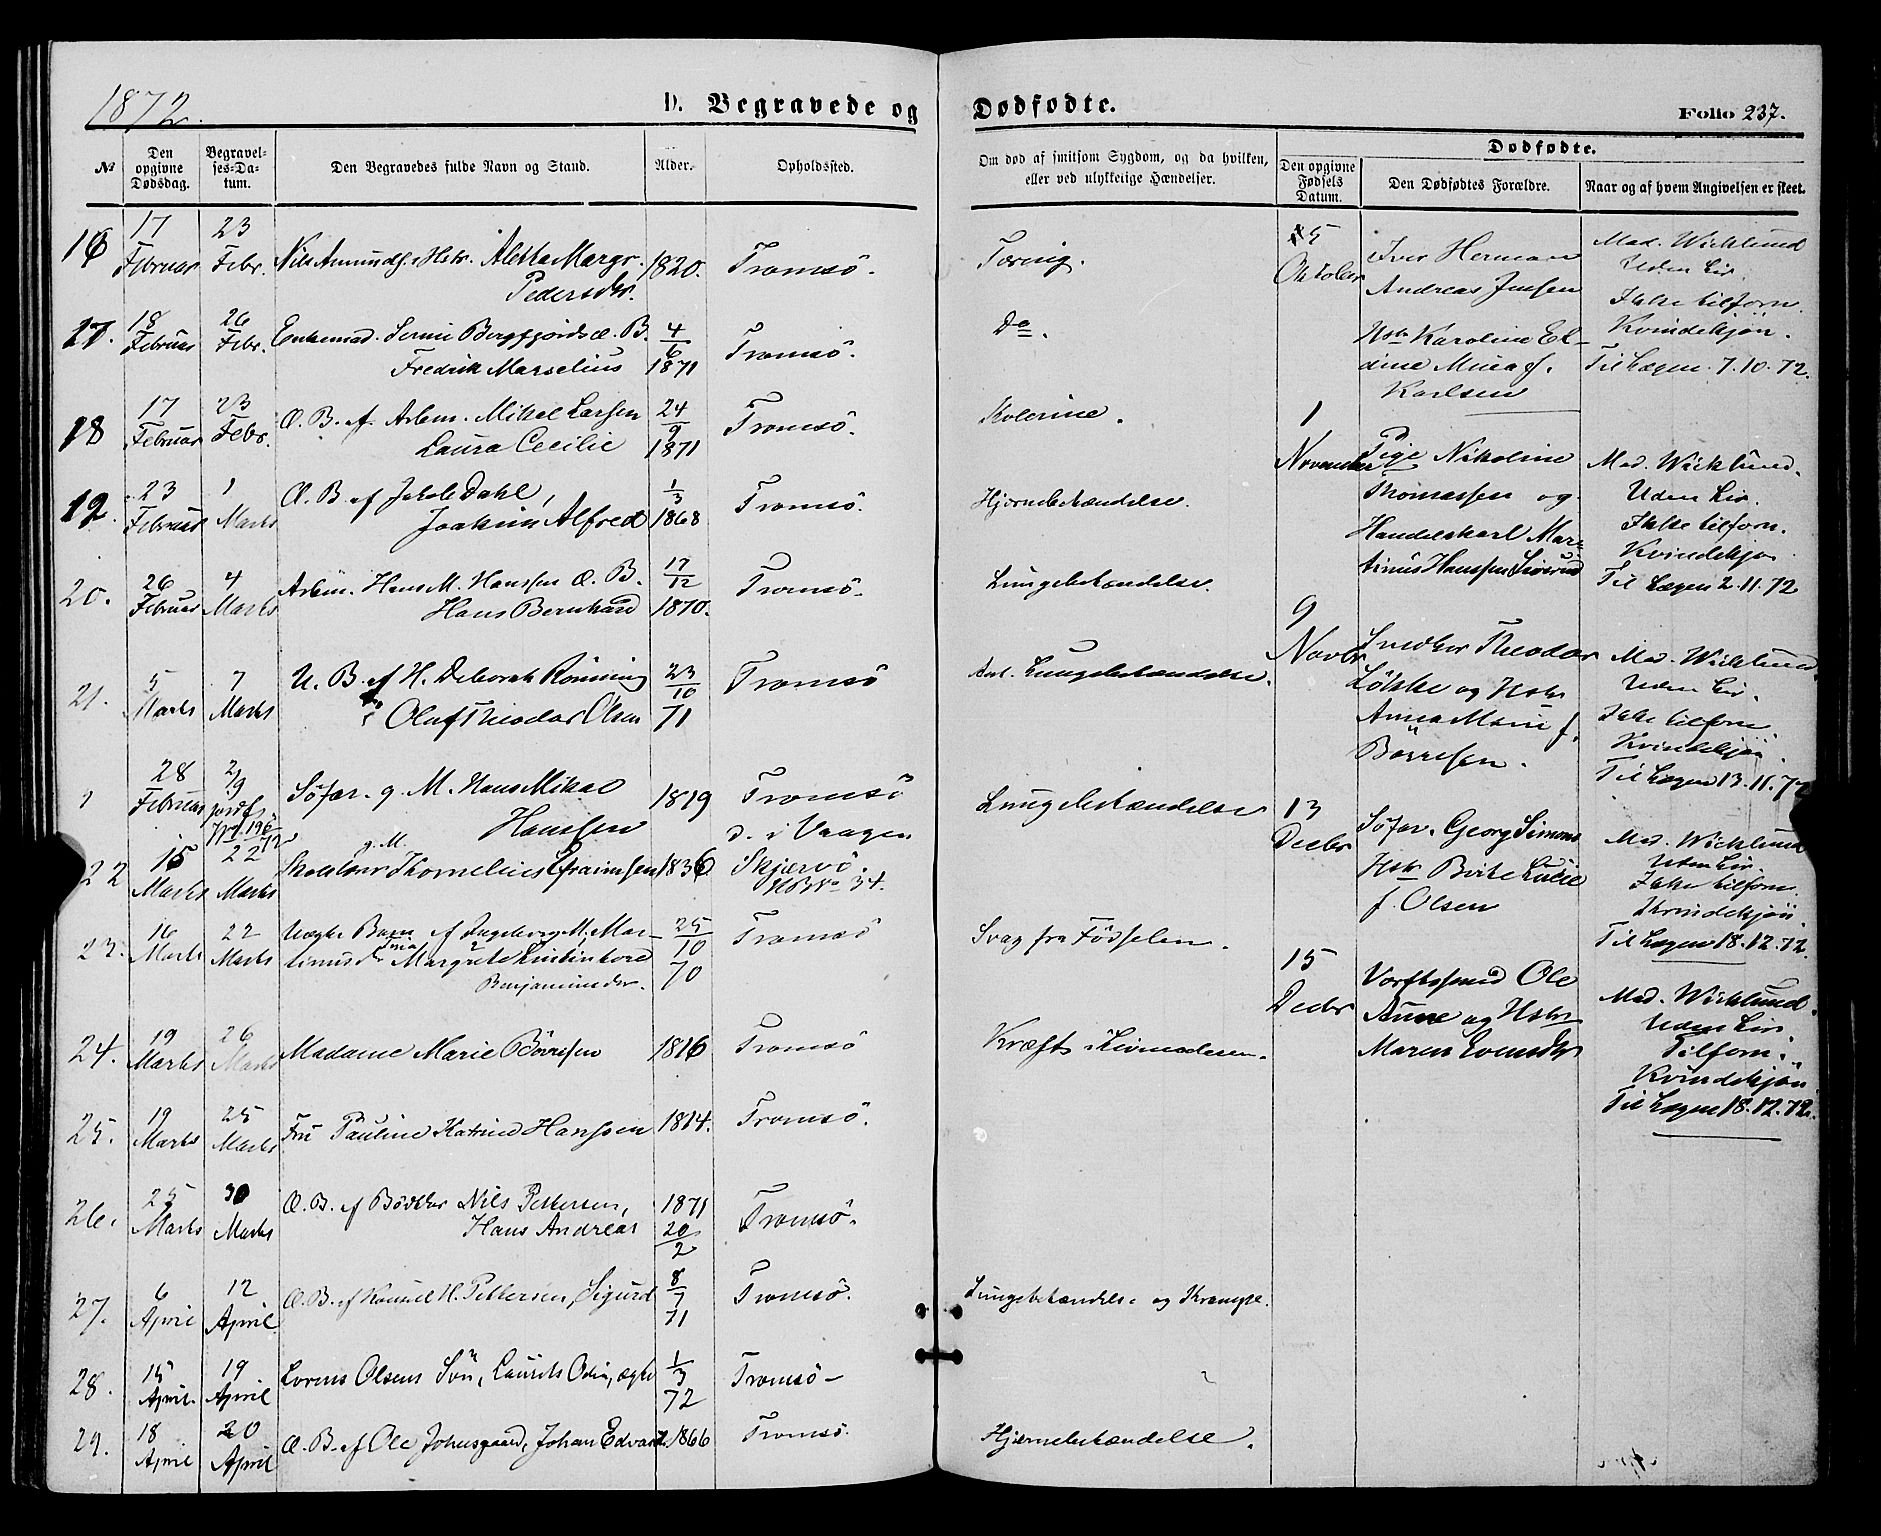 1872.
D. Begravede og Dødfødte.
Folio 237.
№
Den opgivne Dødsdag.
Begravelses-Datum.
Den Begravedes fulde Navn og Stand.
Alder.
Opholdssted.
Om død af smitsom Sygdom, og da hvilken, eller ved ulykkelige Hændelser.
Dødfødte.
Den opgivne Fødsels Datum.
Den Dødfødtes Forældre.
Naar og af hvem Angivelsen er skeet.
16 17 Februar 23 Febr. Nils Amundss. Hstr. Aletta Margr. Pedersdtr. 1820. Tromsö. Tæring.
17. 18 Februar 26 Febr. Enkemad. Bergfjords Æ. B. Fredrik Marselius 4/6 1871 Tromsö. Do.
18 17 Februar 23 Febr. Æ. B. af Arbm. Mikal Larsen Laura Cecilie 24/9 1871 Tromsö. Kolerine.
19. 23 Februar 1 Marts Æ. B. af Jakob Dahl, Joakim Alfred 1/3 1868 Tromsö. Hjernebetændelse.
20. 26 Februar 4 Marts Arbm. Hans M. Hanssen Æ. B. Hans Bernhard 17/12 1870. Tromsö. Lungebetændelse.
21. 5 Marts 7 Marts U. B. af H. Deborah Rönning Oluf Theodor Olsen 23/10 71 Tromsö Ant. Lungebetændelse.
28 Februar 2/9 Söfar. g. M. Hans Mikal Hanssen 1819 Tromsö d. i Vaagen Lungebetændelse
22 15 Marts 22 Marts g. M. Thornelius Efraimsen 1836 Skjærvö.
23. 16 Marts 22 Marts Uægte Barn af Ingeborg M. Martinusdtr. Margrete Benjaminsdtr. 25/10 70 Tromsö Svag fra Födselen.
24. 19 Marts 26 Marts Madame Marie Börresen 1816 Tromsö Kræft i Livmoderen.
25. 19 Marts 25 Marts Fru Pauline Katrine Hanssen 1814. Tromsö.
26. 25 Marts 30 Marts Æ. B. af Bödker Nils Pettersen, Hans Andreas 1871 20/2 Tromsö.
27. 6 April 12 April Æ. B. af Konsul H. Pettersen, Sigurd 8/7 71 Tromsö. Lungebetændelse og Krampe.
28. 15 April. 19 April Lorens Olsens Sön, Laurits Odin, ægte 1/3 72 Tromsö
29. 18 April 20 April Æ. B. af Ole Johnsgaard, Johan Edvard. 1866 Tromsö. Hjernebetændelse.
5 Oktober
Iver Herman
Andreas Jensen
Hstr Karoline
f.
Karlsen
Mad. Wicklund
Uden Liv.
Ikke tilforn.
Kvindekjön.
Til Lægen 7.10.72.
1 November
Pige Nikoline
Thomassen og
Handelskarl Martinus Hanssen
Mad. Wicklund.
Uden Liv.
Ikke tilforn.
Kvindekjö
Til Lægen 2.11.72
9 Novbr
Snedker Theodor
Lökke og Hstr
Anna Marie f.
Börresen.
Mad. Wicklund
Uden Liv.
Ikke tilforn
Kvindekjön
Til Lægen 13.11.72
13 Decbr
Söfar. Georg Simons
Hstr Birte Lucie
f. Olsen
Mad. Wicklund
Uden Liv.
Ikke tilforn.
Kvindekjön
Til Lægen 18.12.72.
15 Decbr
Værftssmed Ole
Aune og Hstr
Maren Evensdtr
Mad. Wicklund.
Uden Liv
Tilforn.
Kvindekjön
Til Lægen 18.12.72.